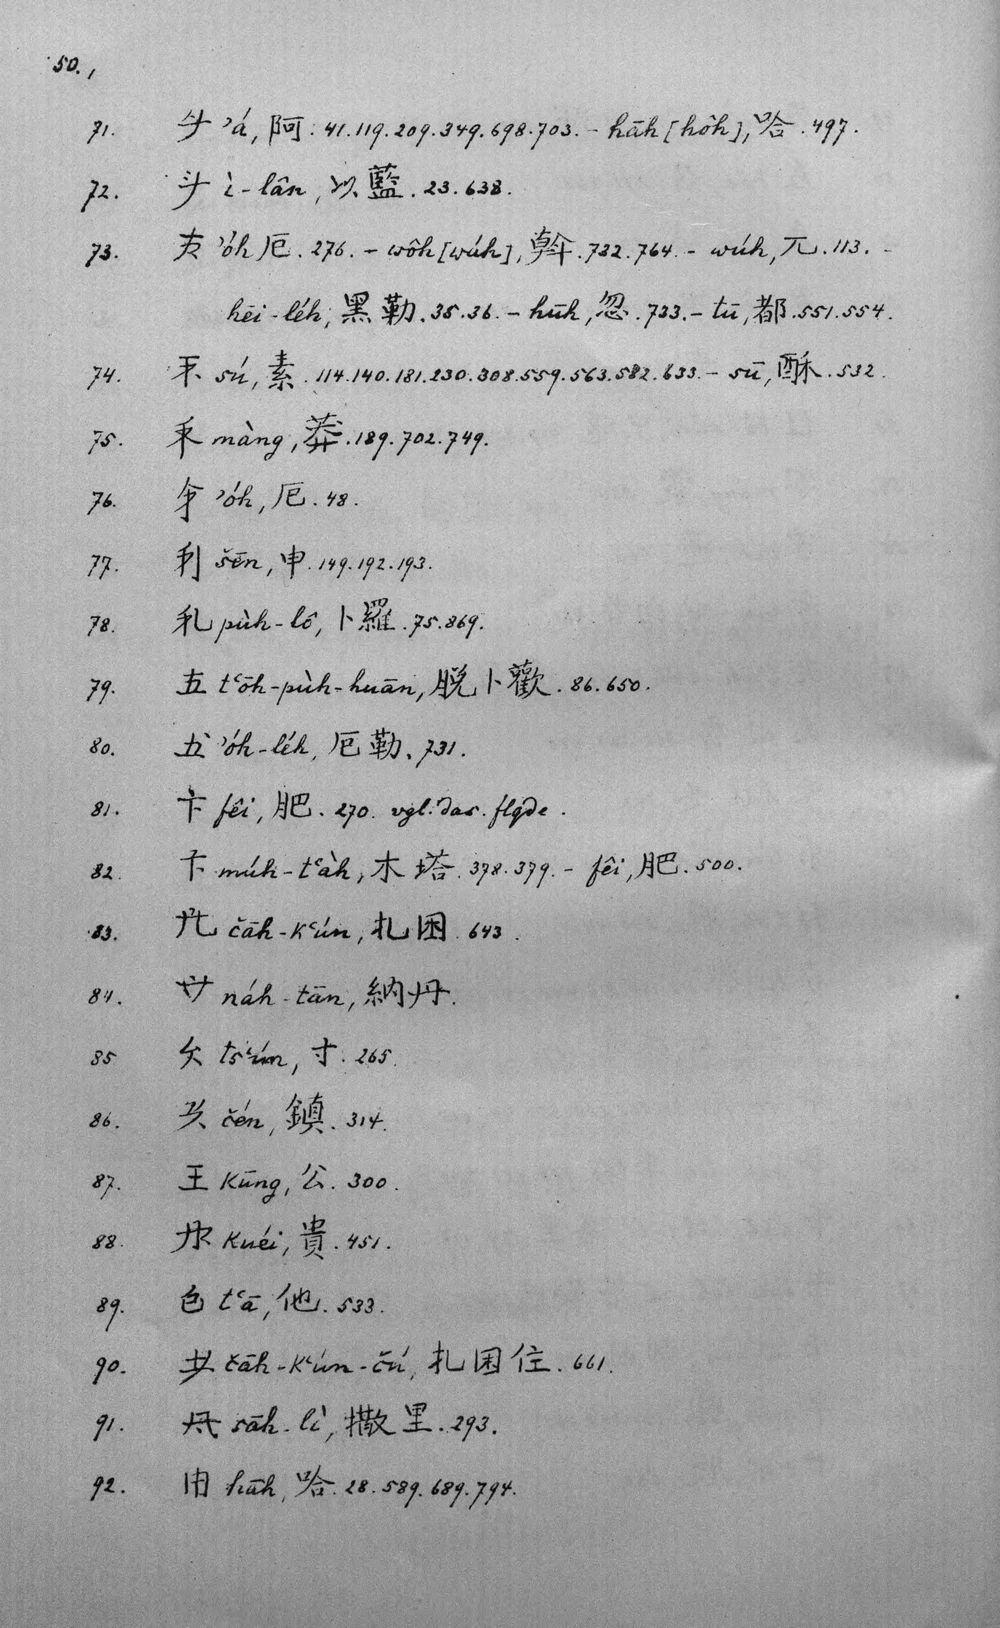 50.,
71. ’á, 阿. 41.119.209.349.698.703. – hāh [hôh], 哈. 497.
72. ì-lân, 以藍. 23.638.
73. ’óh 厄. 276. – wôh [wúh], 斡. 732.764. – wúh, 兀. 113. –
hēi-léh, 黑勒. 35.36. – hūh, 忽. 733. – tū, 都. 551.554.
74. sú, 素. 114.140.181.230.308.559.563.582.633. – sū, 酥. 532.
75. màng, 莽. 189.702.749.
76. ’óh, 厄. 48.
77. šēn, 申. 149.192.193.
78. pùh-lô, 卜羅. 75.869.
79. 五 tʿōh-pùh-huān, 脱卜歡. 86.650.
80. ’óh-léh, 厄勒. 731.
81. fêi, 肥. 270. vgl. das. flgde.
82. múh-tʿàh, 木塔. 378.379. – fêi, 肥. 500.
83. čāh-kʿún, 扎困. 643.
84. náh-tān, 納丹.
85 tsʿún, 寸. 265.
86. čén, 鎮. 314.
87. 王 kūng, 公. 300.
88. kuéi, 貴. 451.
89. 色 tʿā, 他. 533.
90. čāh-kʿún-čú, 扎困住. 661.
91. sāh-lì, 撒里. 293.
92. hāh, 哈. 28.589.689.794.